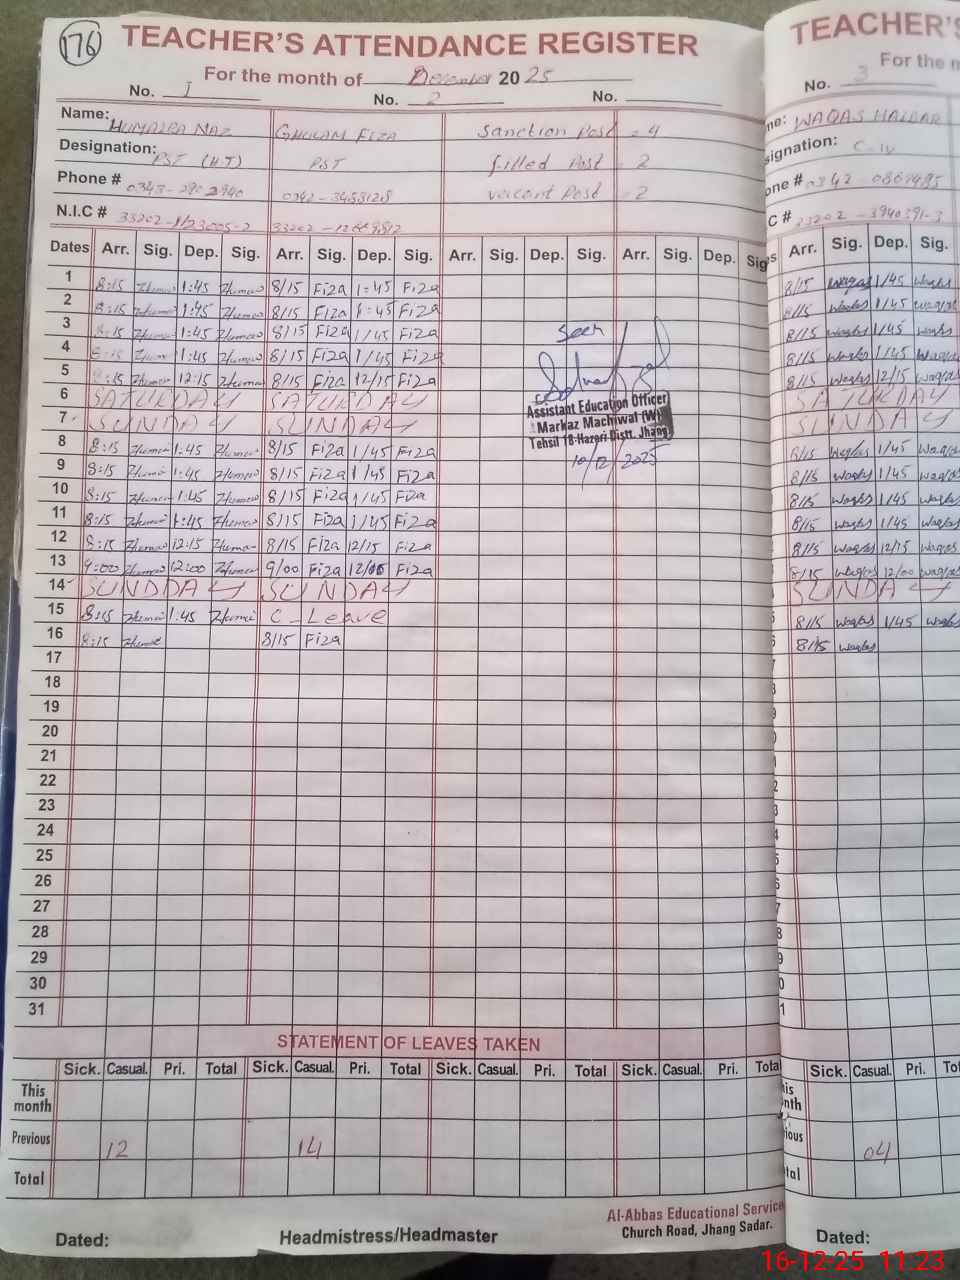 176
TEACHER'S ATTENDANCE REGISTER
For the month of December 2025
No. 1 No. 2 No.
Name: HUMAIRA NAZ GHULAM FIZA Sanction Post = 4
Designation: PST (H.T) PST filled Post = 2
Phone # 0342- vacant Post = 2
N.I.C # 33202- 33202-
Dates Arr. Sig. Dep. Sig. Arr. Sig. Dep. Sig. Arr. Sig. Dep. Sig. Arr. Sig. Dep. Sig
1 8:15 Huma 1:45 Huma 8/15 Fiza 1:45 Fiza
2 8:15 Huma 1:45 Huma 8/15 Fiza 1:45 Fiza
3 8:15 Huma 1:45 Huma 8/15 Fiza 1/45 Fiza
4 8:15 Huma 1:45 Huma 8/15 Fiza 1/45 Fiza
5 8:15 Huma 12:15 Huma 8/15 Fiza 12/15 Fiza
6 SATURDAY SATURDAY
7 SUNDAY SUNDAY
8 8:15 Huma 1:45 Huma 8/15 Fiza 1/45 Fiza
9 8:15 Huma 1:45 Huma 8/15 Fiza 1/45 Fiza
10 8:15 Huma 1:45 Huma 8/15 Fiza 1/45 Fiza
11 8:15 Huma 1:45 Huma 8/15 Fiza 1/45 Fiza
12 8:15 Huma 12:15 Huma 8/15 Fiza 12/15 Fiza
13 9:00 Huma 12:00 Huma 9/00 Fiza 12/00 Fiza
14 SUNDDAY SUNDAY
15 8:15 Huma 1:45 Huma C-Leave
16 8:15 Huma 8/15 Fiza
17
18
19
20
21
22
23
24
25
26
27
28
29
30
31
Seen
Assistant Education Officer
Markaz Machiwal (W)
Tehsil 18-Hazari Distt. Jhang
10/12/2025
STATEMENT OF LEAVES TAKEN
Sick. Casual. Pri. Total Sick. Casual. Pri. Total Sick. Casual. Pri. Total Sick. Casual. Pri. Total
This month
Previous 12 14
Total
Al-Abbas Educational Service
Church Road, Jhang Sadar.
Dated: Headmistress/Headmaster
TEACHER'S
For the m
No. 3
me: WAQAS HAIDAR
signation: C-IV
one # 0342-
C #
s Arr. Sig. Dep. Sig.
8/15 Waqas 1/45 Waqas
8/15 Waqas 1/45 Waqas
8/15 Waqas 1/45 Waqas
8/15 Waqas 1/45 Waqas
8/15 Waqas 12/15 Waqas
SATURDAY
SUNDAY
8/15 Waqas 1/45 Waqas
8/15 Waqas 1/45 Waqas
8/15 Waqas 1/45 Waqas
8/15 Waqas 1/45 Waqas
8/15 Waqas 12/15 Waqas
8/15 Waqas 12/00 Waqas
SUNDAY
8/15 Waqas 1/45 Waqas
8/15 Waqas
Sick. Casual. Pri. To
is nth
ious 04
tal
Dated:
16-12-25 11:23